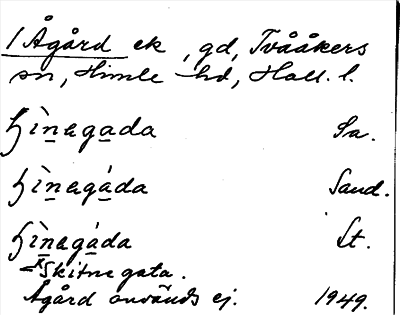 1 Ågård ek, gd, Tvååkers
sn, Himle hd, Hall. l.
ꜧìnegada Sa.
ꜧìnegáda Sand.
ꜧìnegáda St.
Skitnegata.
Ågård används ej. 1949.